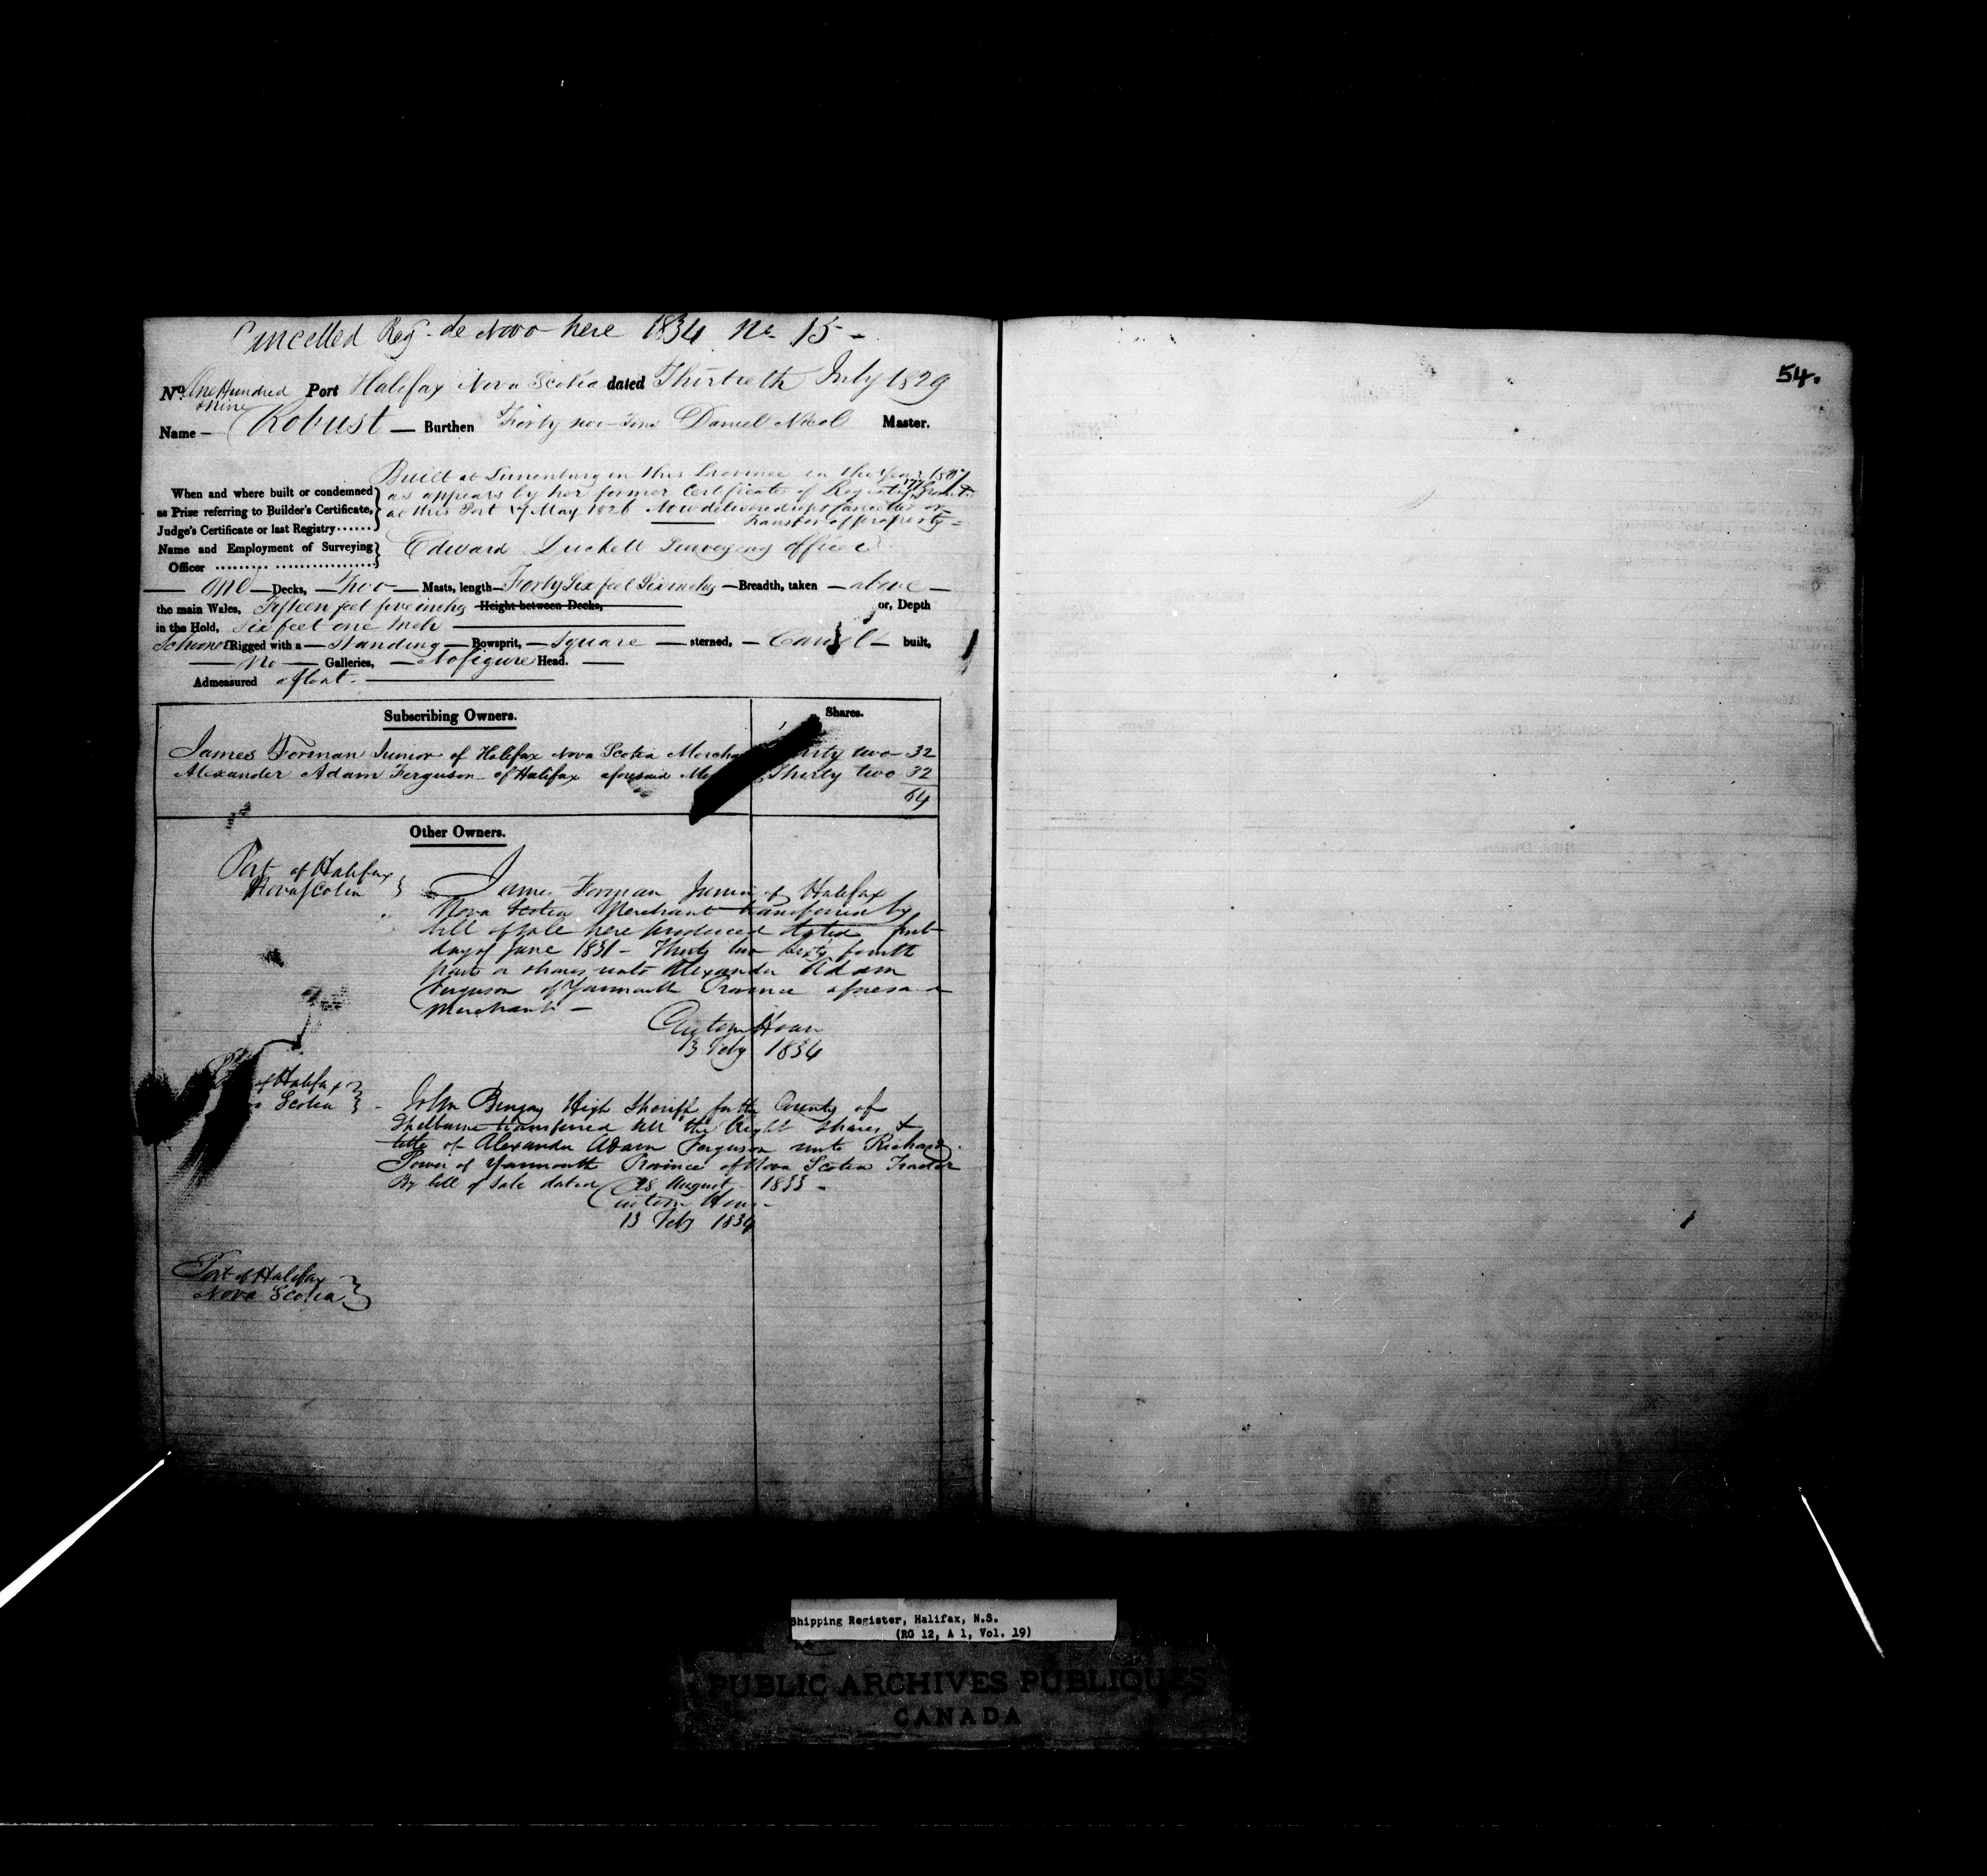 Cancelled Reg. de Novo here 1834 No. 15 -
54.
No. One Hundred & Nine Port Halifax Nova Scotia dated Thirtieth July 1829
Name - Robust - Burthen Forty two Tons Daniel Nicol Master.
Built at Lunenburg in this Province in the Year
When and where built or condemned as appears by her former Certificate of Registry
as Prize referring to Builder's Certificate, at this Port May 1826 Now delivered up & Cancelled
Judge's Certificate or last Registry...... Transfer of property -
Name and Employment of Surveying Edward Duckett Surveying Officer
Officer
One Decks, Two Masts, length Forty Six feet Six inches Breadth, taken above
the main Wales, Fifteen feet five inches Height between Decks, or, Depth
in the Hold, Six feet one Inch
Schooner Rigged with a Standing Bowsprit, Square sterned, Carvel built,
No Galleries, No figure Head.
Admeasured afloat.
Subscribing Owners. Shares.
James Forman Junior of Halifax Nova Scotia Thirty two 32
Alexander Adam Ferguson of Halifax aforesaid Thirty two 32
64
Other Owners.
Port of Halifax
Nova Scotia
James Forman Junior of Halifax
Nova Scotia Merchant transferred by
bill of sale here produced dated first
day of June 1831 - Thirty two sixty fourth
parts or shares unto Alexander Adam
Ferguson of Yarmouth Province aforesaid
Merchant -
Custom House
13 Feby 1834
of Halifax
Scotia
John Bingay High Sheriff for the County of
Shelburne transferred all the Right Shares &
title of Alexander Adam Ferguson unto Richard
Power of Yarmouth Province of Nova Scotia Trader
By bill of sale dated 28 August 1833 -
Custom House
13 Feby 1834
Port of Halifax
Nova Scotia
Shipping Register, Halifax, N.S.
(RG 12, A 1, Vol. 19)
PUBLIC ARCHIVES PUBLIQUES
CANADA